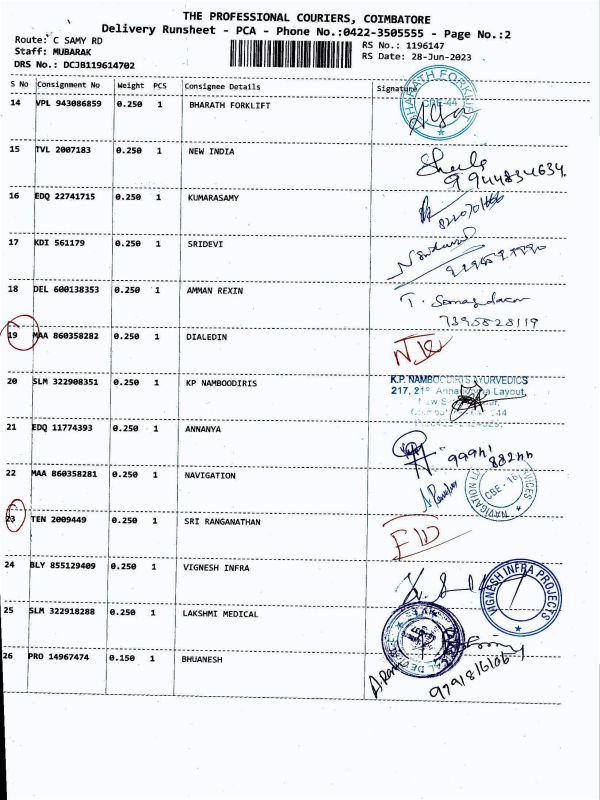 THE PROFESSIONAL COURIERS, COIMBATORE
Delivery Runsheet - PCA - Phone No.:0422-3505555 - Page No.:2
Route: C SAMY RD
Staff: MUBARAK
DRS No.: DCJB119614702
RS No.: 1196147
RS Date: 28-Jun-2023
S No Consignment No Weight PCS Consignee Details Signature
14 VPL 943086859 0.250 1 BHARATH FORKLIFT
BHARATH FORKLIFT
CBE-44
15 TVL 2007183 0.250 1 NEW INDIA
9944834634
16 EDQ 22741715 0.250 1 KUMARASAMY
17 KDI 561179 0.250 1 SRIDEVI
18 DEL 600138353 0.250 1 AMMAN REXIN
7395823119
19 MAA 860358282 0.250 1 DIALEDIN
20 SLM 322908351 0.250 1 KP NAMBOODIRIS
K.P. NAMBOODIRIS AYURVEDICS
217, 21 Layout,
21 EDQ 11774393 0.250 1 ANNANYA
22 MAA 860358281 0.250 1 NAVIGATION
CBE - 18
NAVIGATION
23 TEN 2009449 0.250 1 SRI RANGANATHAN
24 BLY 855129409 0.250 1 VIGNESH INFRA
VIGNESH INFRA PROJECTS
25 SLM 322918288 0.250 1 LAKSHMI MEDICAL
26 PRO 14967474 0.150 1 BHUANESH